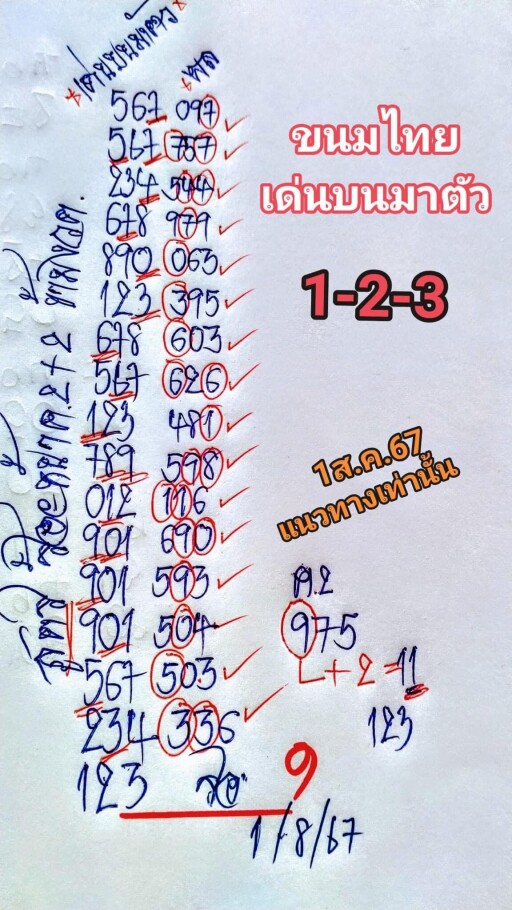 *เด่นบนมาตัว *ผล
567 097
567 757
234 544
678 979
890 063
123 395
678 603
567 626
123 481
789 598
012 116
901 690
901 593
901 504
567 503
234 336
123 รอ
ขนมไทย
เด่นบนมาตัว
1-2-3
1ส.ค.67
แนวทางเท่านั้น
975
+2=11
123
9
1/8/67